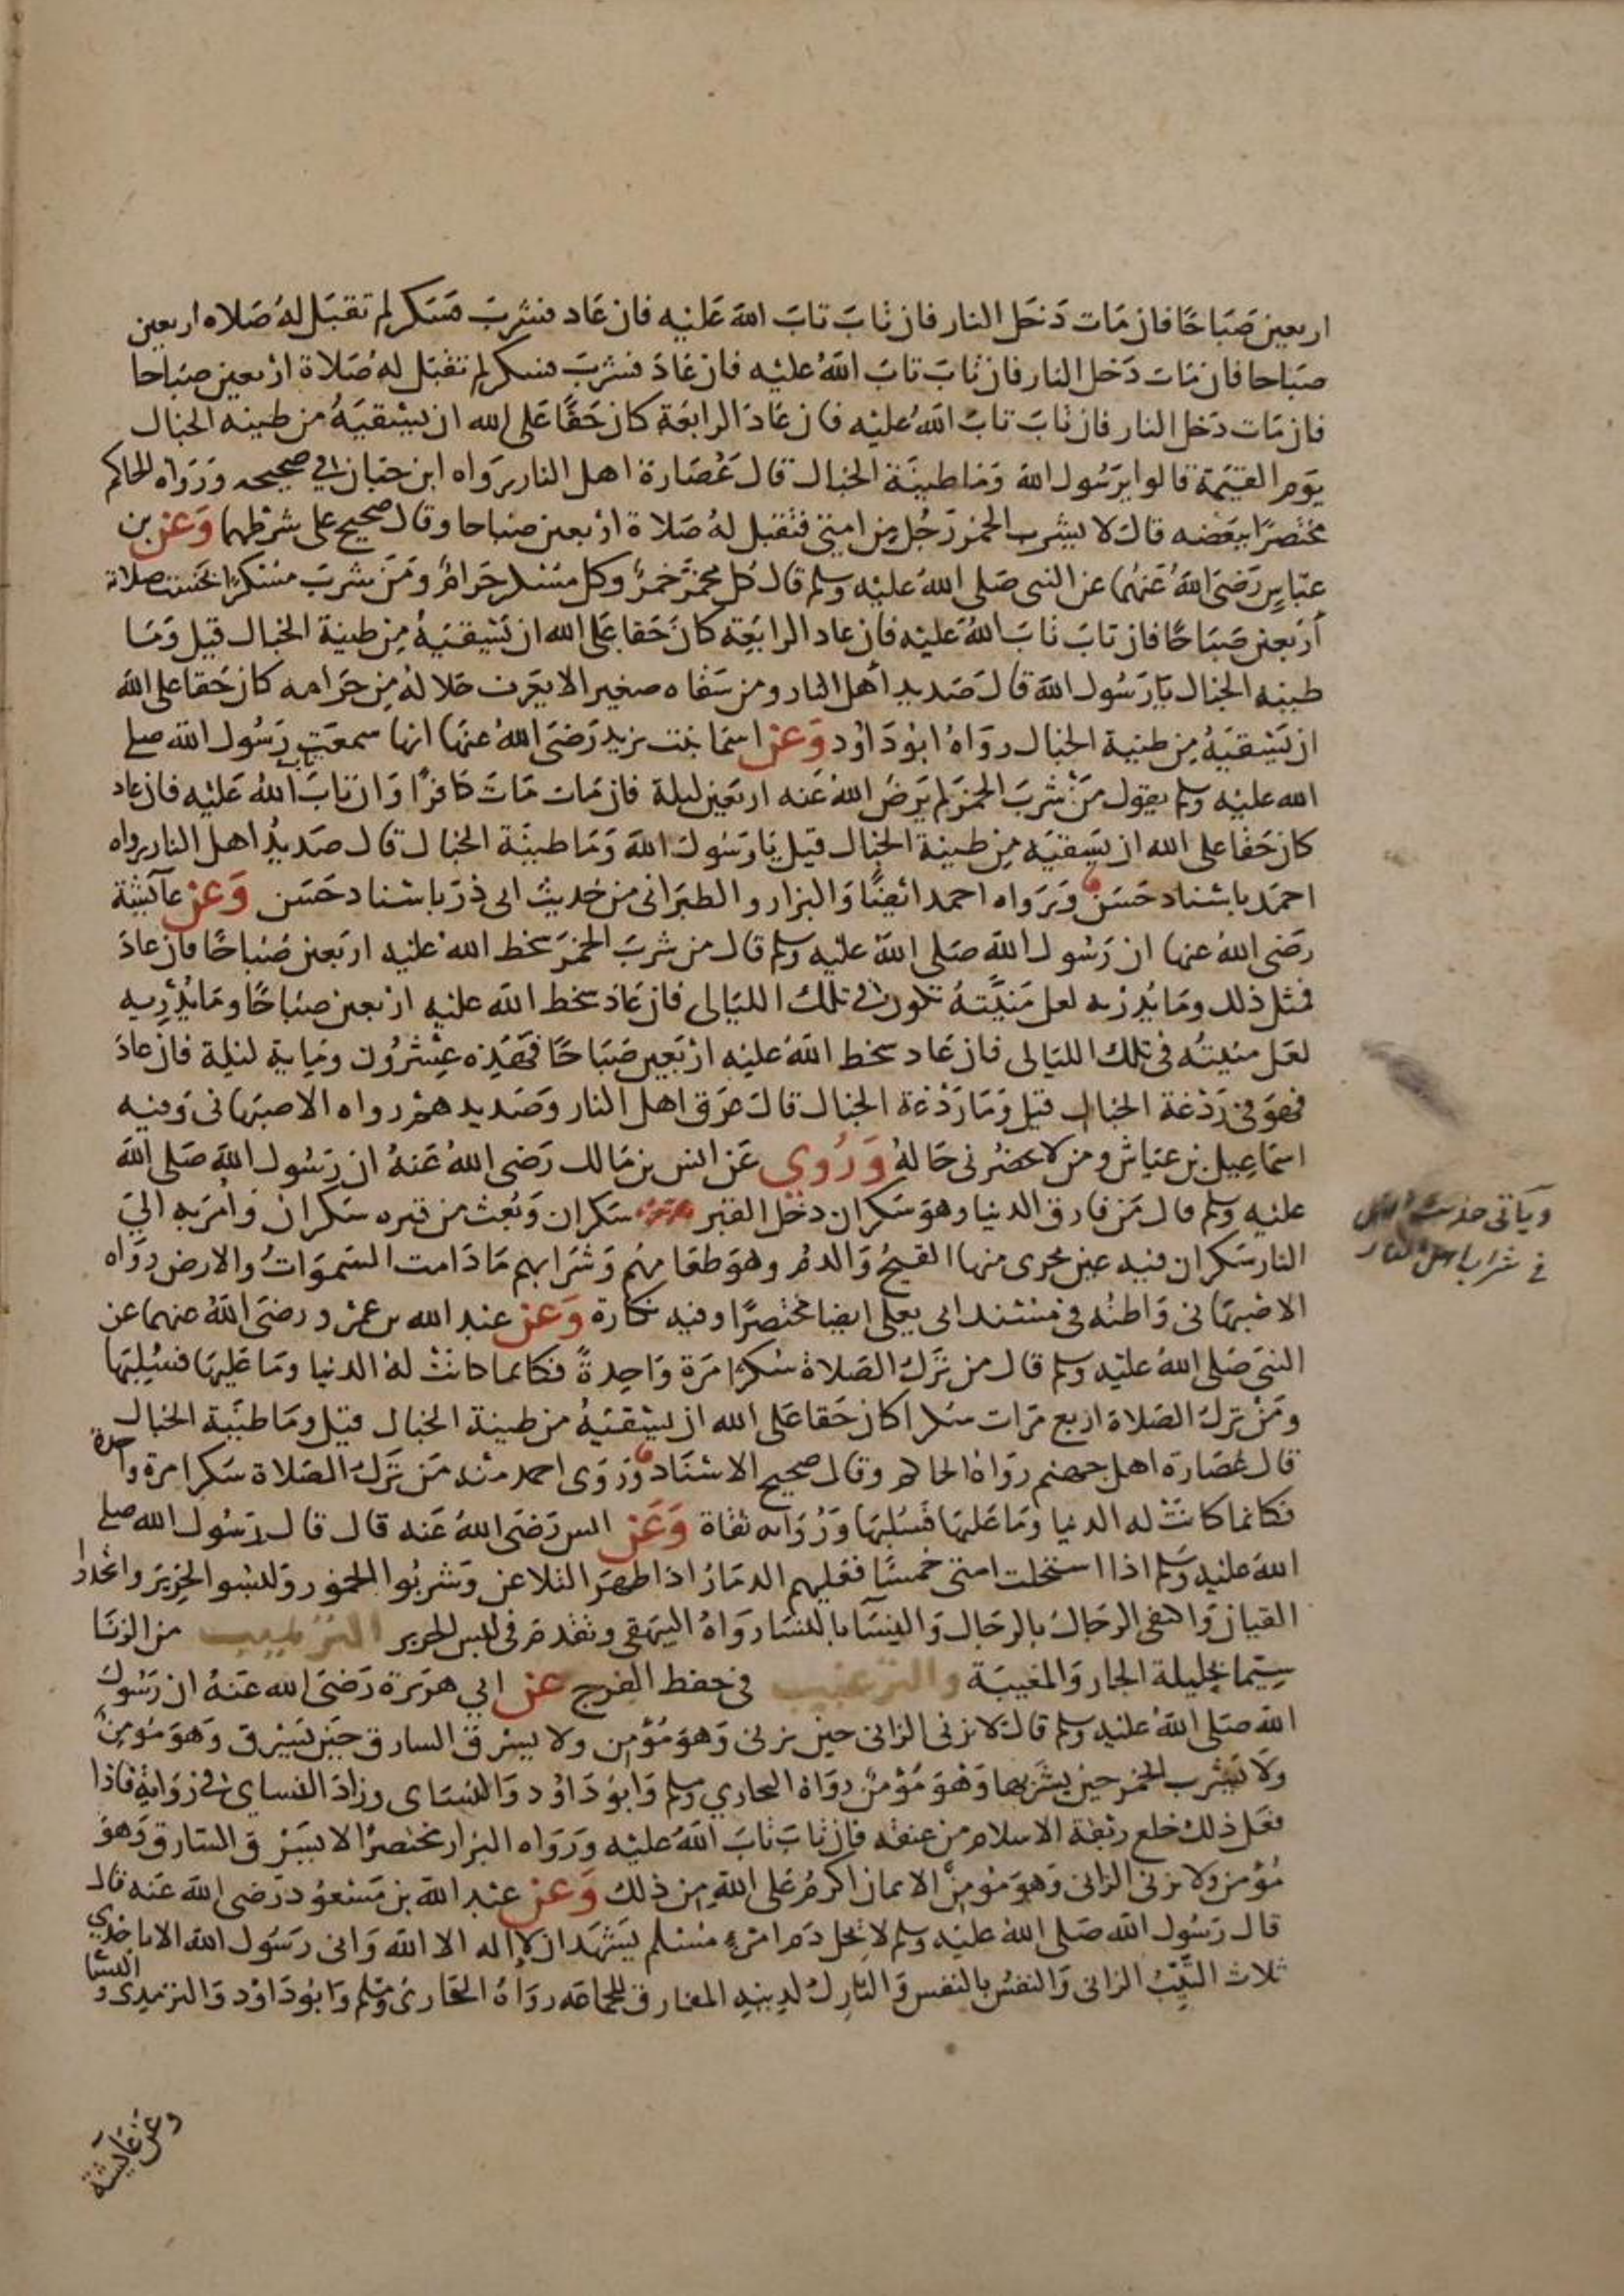 اربعين صَبَاحًا فان مَات دَخَل النار فان تَابَ تابَ اللهَ عَليْه فان عَاد فشربَ فسَكر لم تقبَل لهُ صَلاه اربعين
صبَاحا فان مَات دَخل النار فان تابَ تابَ اللهُ عليْه فان عَادَ فشربَ فسكر لم تقبَل لهُ صَلاة ارْبعين صبَاحا
فان مَات دَخل النار فان تابَ تابَ اللهُ عليْه فان عَادَ الرابعَة كان حَقًّا عَلى الله ان يسْقيَهُ من طينه الخبال
يَوم القيٰمة قالوا يرَسُول الله وَمَا طينَة الخبال قالَ عُصَارة اهل النار رَواه ابن حبَان في صحيحه وَرَوَاه الحاكم
مختصرًا ببَعْضه قالَ لا يشرب الخمر رَجُل مِن امتي فتقبل لهُ صَلاة ارْبعين صبَاحا وقال صحيح على شرطهما وَعن بن
عبّاسٍ رَضىَ اللهُ عَنهُما عن النبى صَلى اللهُ عليْه وسلم قالَ كل مخمرٍ خمرٌ وكل مسْكر حَرامٌ وَمَن شربَ مسْكرًا بخسَت صلاته
أرْبَعين صَبَاحًا فان تابَ تابَ اللهُ عَليْه فان عاد الرابعَة كانَ حَقا عَلى الله ان يَسْقيَهُ مِن طينة الخبال قيلَ وَمَا
طينه الخبال يَا رَسُول الله قالَ صَديد أهل النار ومن سَقاه صغيرا لا يعَرف حَلالهُ مِن حَرامه كان حَقا على الله
ان يَسْقيَهُ مِن طينة الخبال روَاهُ ابوُ دَاوُد وَعن اسمَا بنت يزيد رَضىَ اللهُ عنهَا انها سمعَت رَسُول الله صلى
الله عليْه وسلم يقول مَنْ شربَ الخمرَ لم يَرضَ اللهُ عَنه اربَعين ليلة فان مَات مَاتَ كافرًا وَان تابَ تاب اللهُ عَليْه فان عاد
كان حَقا على الله ان يَسقيَه مِن طينة الخبال قيل يَا رَسُولَ اللهَ وَمَا طينَة الخبال قال صَديدُ اهل النار رواه
احمَد باسْناد حَسَن وَرَواه احمد ائضًا وَالبزار والطبَرانى من حَديث ابى ذرّ باسْناد حَسَن وَعَن عآئشة
رضَى اللهُ عنها ان رَسُول اللهَ صَلى اللهَ عليْه وسلم قال من شربَ الخمرَ سخط اللهُ عليْه اربَعين صَباحًا فان عادَ
فمثل ذلك ومَا يُدْريه لعل مَنيّتهُ تكون في تلكَ الليَالى فان عَادَ سخط اللهَ عليْه ارْبعين صبَاحًا ومَا يُدْريه
لعَل منيتُه في تلكَ الليَالى فان عَاد سخط اللهَ عليْه ارْبَعين صَبَاحًا فهَذه عشْرُون ومَاية ليْلة فان عادَ
فهوَ في رَدْغة الخبال قيل وَمَا رَدْغة الخبال قالَ عرَق اهل النار وَصَديدهمْ رواه الاصبَهانى وَفيْه
اسمَاعيل بن عيَاش ومن لا يحضرُنى حَالهُ وَرُوِي عَن انس بن مَالك رَضى اللهُ عَنهُ ان رَسُول اللهَ صَلى الله
عليْه وسلم قال مَن فارق الدنيا وهوَ سَكران دخل القبر سَكران وَبُعث من قبره سَكرانَ وَأُمرَ به الىَ
النار سَكران فيه عين يجرى منها القيحُ وَالدمُ وهوَ طعَامهُم وَشرَابهم مَا دَامت السّموَاتُ والارض روَاه
الاصْبهَانى وَاظنه فى مسْند ابى يعلى ايضا مختصرًا وفيه نكارة وَعَن عبْد الله بن عمْرو رضىَ اللهُ عنهما عن
النبىَ صَلى اللهُ عليْه وسلم قال من تَركَ الصَلاة سُكرًا مَرَة وَاحدةً فكانما كانَتْ لهُ الدنيا ومَا عَليْهَا فسُلِبَهَا
ومَنْ تركَ الصَلاة ارْبع مَرات سُكرا كان حَقا عَلى الله ان يسْقيَهُ من طينة الخبال قيل ومَا طينَة الخبال
قالَ عُصَارة اهل جهنم روَاهُ الحاكم وقال صحيح الاسْنَاد وَرَوَى احمد منه مَن تَركَ الصَلاة سَكرا مرة واحدة
فكانما كانَتْ له الدنيا وَمَا عَليْهَا فَسُلبَهَا وَرُوَاته ثقاة وَعَن انس رَضىَ اللهُ عَنه قال قال رَسُول الله صلى
اللهَ عليْه وسَلم اذا استحلت امتى خمسًا فعَليهم الدمَارُ اذا ظهَرَ التلاعن وَشربُوا الخمور وَلبسُوا الحَرِيرَ واتخذوا
القيان وَاكتفى الرجَالُ بالرجَال وَالنسَآ بالنسَا روَاهُ البيَهقى وتقدمَ في لبس الحَرير الترْهيب من الزنا
سيّما بحليلة الجار وَالمغيبَة والترغيب في حفظ الفرج عن ابي هرَيرة رَضىَ الله عَنهُ ان رَسُولَ
اللهَ صَلى اللهُ عليْه وسلم قالَ لا يزنى الزانى حين يزنى وَهوَ مُؤْمن ولا يسْرق السارق حيَن يسْرق وَهوَ مُومنٌ
ولَا يَشرب الخمر حينَ يشرَبها وَهْوَ مُؤمنٌ روَاهُ البخاري وسلم وَابوُ دَاوُد وَالنسَاى وزادَ النسَاى في رِوَايةٍ فاذا
فعَل ذلكَ خلع ربْقة الاسلام من عنقه فان تابَ تابَ اللهُ عليْه وَرَوَاه البزار مختصرًا لا يسْرق السَارق وَهوَ
مُؤمن ولا يزنى الزانى وَهوَ مُومنٌ الايمان اكرمُ عَلى الله من ذلكَ وَعن عبْد اللهَ بن مَسْعوُد رَضى اللهَ عَنه قالَ
قال رَسُول اللهَ صَلى اللهُ عليْه وسلم لا يحل دَم امرئٍ مسْلم يَشهَد ان لا اله الا الله وَانى رَسَول الله الا باحْدي
ثلاث الثيّبُ الزانى وَالنفسُ بالنفس وَالتارِكُ لدينِه المفارق للجمَاعَه روَاهُ البخارىَ ومُسْلم وَابوُ دَاوُد وَالترمذى والنسَا
وعن عآيشة
وَياتى حديث
في شراب اهل النار